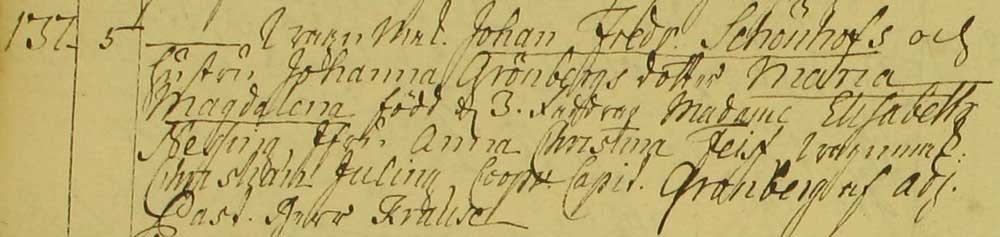 137. 5 Vagnmak. Johan Fredr. Schönhofs och
hustru Johanna Grönbergs dotter Maria
Magdalena född d 3. Faddrar Madame Elisabeth
Fru Anna Christina Feif, Vagnmak.
Christian Juling, Coop. Capit. Grönberg af adj.
Past. Herr Krausel